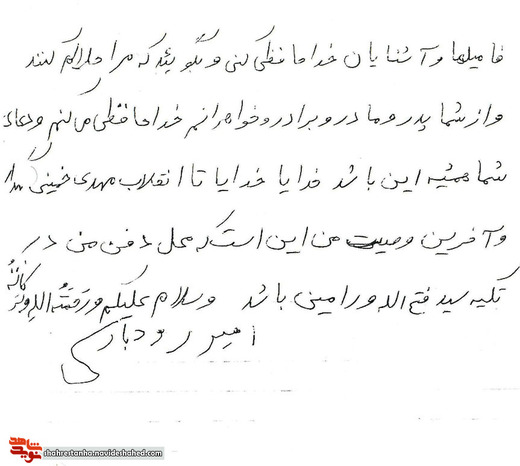 فامیلها و آشنایان خداحافظی کنی و بگوئید که مرا حلالم کنند
و از شما پدر و مادر و برادر و خواهرانم خداحافظی می کنم و دعای
شما همیشه این باشد خدایا خدایا تا انقلاب مهدی خمینی را
و آخرین وصیت من این است که محل دفن من در
تکیه سید فتح اله ورامین باشد وسلام علیکم و رحمته الله و برکاته
امیر رودباری
نوید شاهد
shahrestanha.navideshahed.com